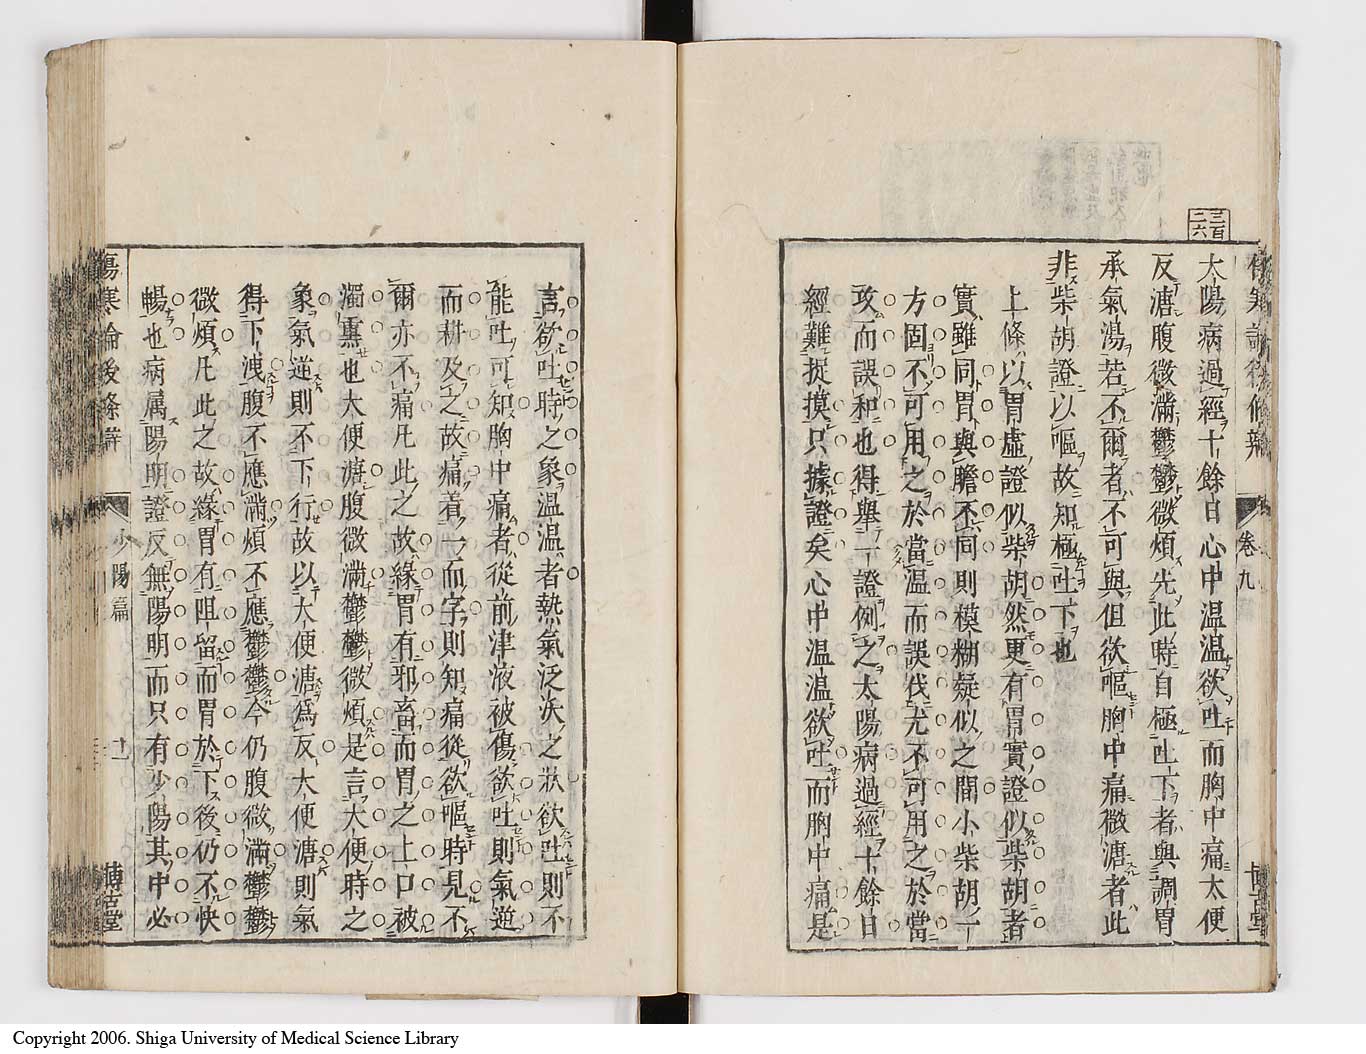 三百二六
傷寒論後條辨
卷九
博古堂
太陽病過經十餘日心中温温欲吐而胸中痛大便
反溏腹微滿鬱鬱微煩先此時自極吐下者與調胃
承氣湯若不爾者不可與但欲嘔胸中痛微溏者此
非柴胡證以嘔故知極吐下也
上條以胃虛證似柴胡然更有胃實證似柴胡者
實雖同胃與膽不同則模糊疑似之間小柴胡一
方固不可用之於當温而誤伐尤不可用之於當
攻而誤和也得舉一證例之太陽病過經十餘日
經難捉摸只據證矣心中温温欲吐而胸中痛是
言欲吐時之象温温者熱氣泛泆之狀欲吐則不
能吐可知胸中痛者從前津液被傷欲吐則氣逆
而耕及之故痛着一而字則知痛從欲嘔時見不
爾亦不痛凡此之故緣胃有邪畜而胃之上口被
濁熏也大便溏腹微滿鬱鬱微煩是言大便時之
象氣逆則不下行故以大便溏為反大便溏則氣
得下洩腹不應滿煩不應鬱鬱今仍腹微滿鬱鬱
微煩凡此之故緣胃有阻留而胃於下後仍不快
暢也病属陽明證反無陽明而只有少陽其中必
傷寒論後條辨
少陽篇
十一
博古堂
Copyright 2006. Shiga University of Medical Science Library